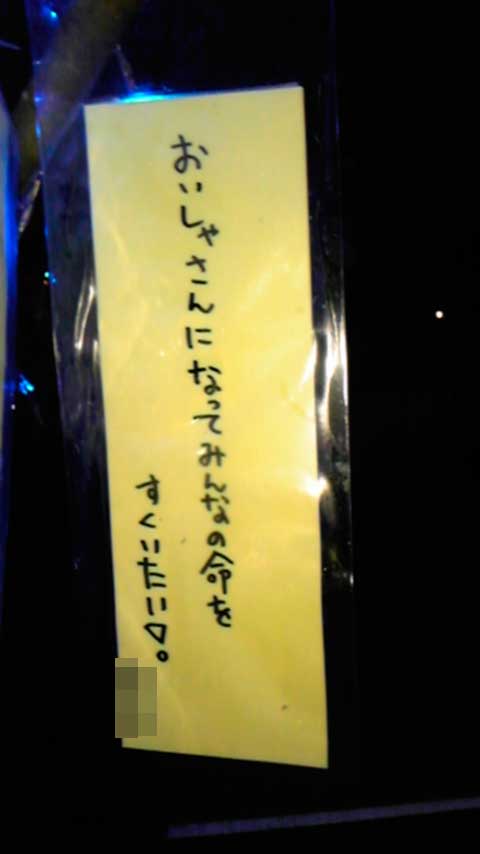 おいしゃさんになってみんなの命を
すくいたい♡。